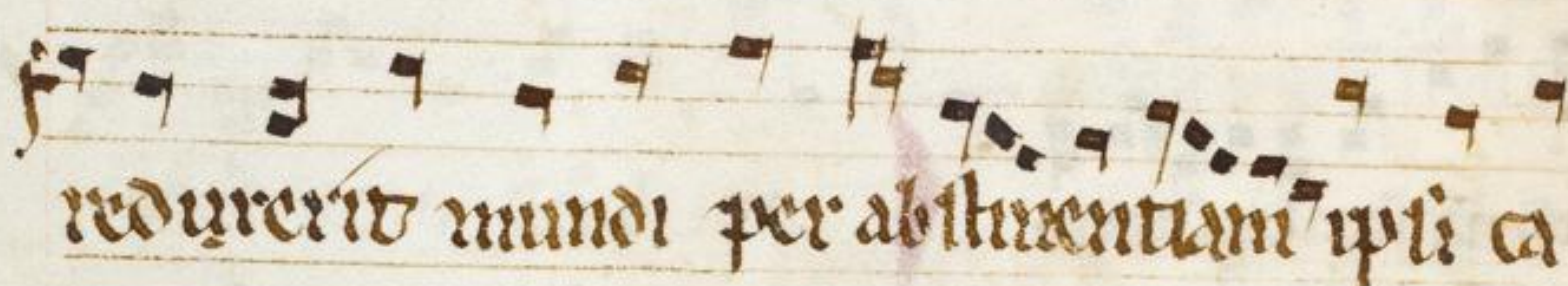 reduxerit mundi per abstinentiam ipsi ca